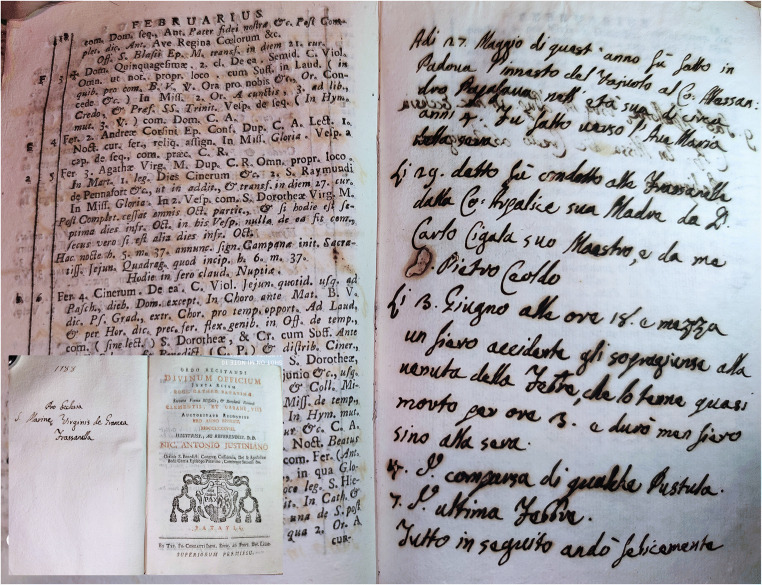 FEBRUARIUS
com. Dom. seq. Ant. Pater fidei nostræ &c. Post Com-
plet. dic. Ant. Ave Regina Cœlorum &c.
Off. S. Blasii Ep. M. transf. in diem 21. cur.
F 3 4. Dom. Quinquagesimæ. 2. cl. De ea. Semid. C. Viol.
Omn. ut not. propr. loco. cum Suff. in Laud. (in
quib. per com. B. V. Ora pro nobis &c. Or. Con-
cede &c.) In Miss. 2. Or. A cunctis, 3. ad lib.,
Credo, & Præf. SS. Trinit. Velp. de seq. (in Hym.
mut. 3. V.) com. Dom. C. A.
4 Fer. 2. Andreæ Corsini Ep. Conf. Dup. C. A. Lect. 1.
Noct. cur. fer., reliq. assign. In Miss. Gloria. Velp. a
cap. de seq., com. præc. C. R.
a 5 Fer 3. Agathæ Virg. M. Dup. C. R. Omn. propr. loco.
In Mart. 1. leg. Dies Cinerum &c. 2, S. Raymundi
de Pennafort &c., ut in addit., & transf. in diem 27. cur.
In Miss. Gloria. In 2. Vesp. com. S. Dorotheæ Virg. M.
Post Complet. cessat omnis Oct. partic., & si hodie est se-
ptima dies infr. Oct. in his Vesp. nulla de ea fit com.,
secus vero si est alia dies infr. Oct.
Hac nocte h. 5. m. 37. annunc. sign. Campanæ init. Sacra-
tiss. Jejun. Quadrag. quod incip. h. 6. m. 37.
Hodie in sero claud. Nuptiæ.
b 6 Fer. 4. Cinerum. De ea. C. Viol. Jejun. quotid. usq. ad
Pasch., dieb. Dom. except. In Choro ante Mat. B. V.
dic. Ps. Grad., extr. Chor. pro temp. opport. Ad Laud,
& per Hor. dic. prec. fer. flex. genib. in Off. de temp.,
com. (sine lect.) S. Dorotheæ, & Cr. cum Suff. Ante
distrib. Ciner.,
S. Dorotheæ,
junio &c., usq.
& Coll. Mi-
Miss. de temp.,
In Hym. mut.
ur &c. C. A.
Noct. Beatus
com. Fer. (Ant.
in qua Glo-
oco leg. S. Hie-
it. In Cath. &
una de S. post
qua 2. Or. A
cur-
1788
Pro Ecclesia
S. Marinæ Virginis de
Frassanella
ORDO RECITANDI
DIVINUM OFFICIUM
JUXTA RITUM
CLEMENTIS, ET URBANI VIII
AUCTORITATE
NIC. ANTONIO JUSTINIANO
PAX
PATAVII,
SUPERIORUM PERMISSU.
Adi 27. Maggio di quest' anno fù fatto in
Padova l'innesto del Vajuolo al Co: Alessan:
dro Papafava nell' età sua di circa
anni 4. Fu fatto verso l'Ave Maria
della sera.
Li 29. detto fù condotto alla Frassanella
dalla Co: Arpalice sua Madre da D.
Carlo Cigala suo Maestro, e da me
D. Pietro Ceoldo
Li 3. Giugno alle ore 18. e mezza
un fiero accidente gli sopragiunse alla
venuta della Febre, che lo tenne quasi
morto per ore 3. e durò men fiero
sino alla sera.
comparsa di qualche Pustula.
7. ultima Febre.
Tutto in seguito andò felicemente